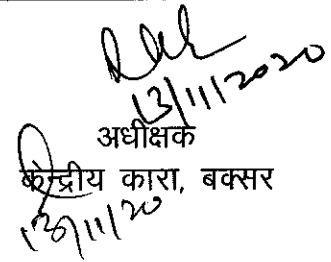 13/11/2020
अधीक्षक
केन्द्रीय कारा, बक्सर
13/11/20